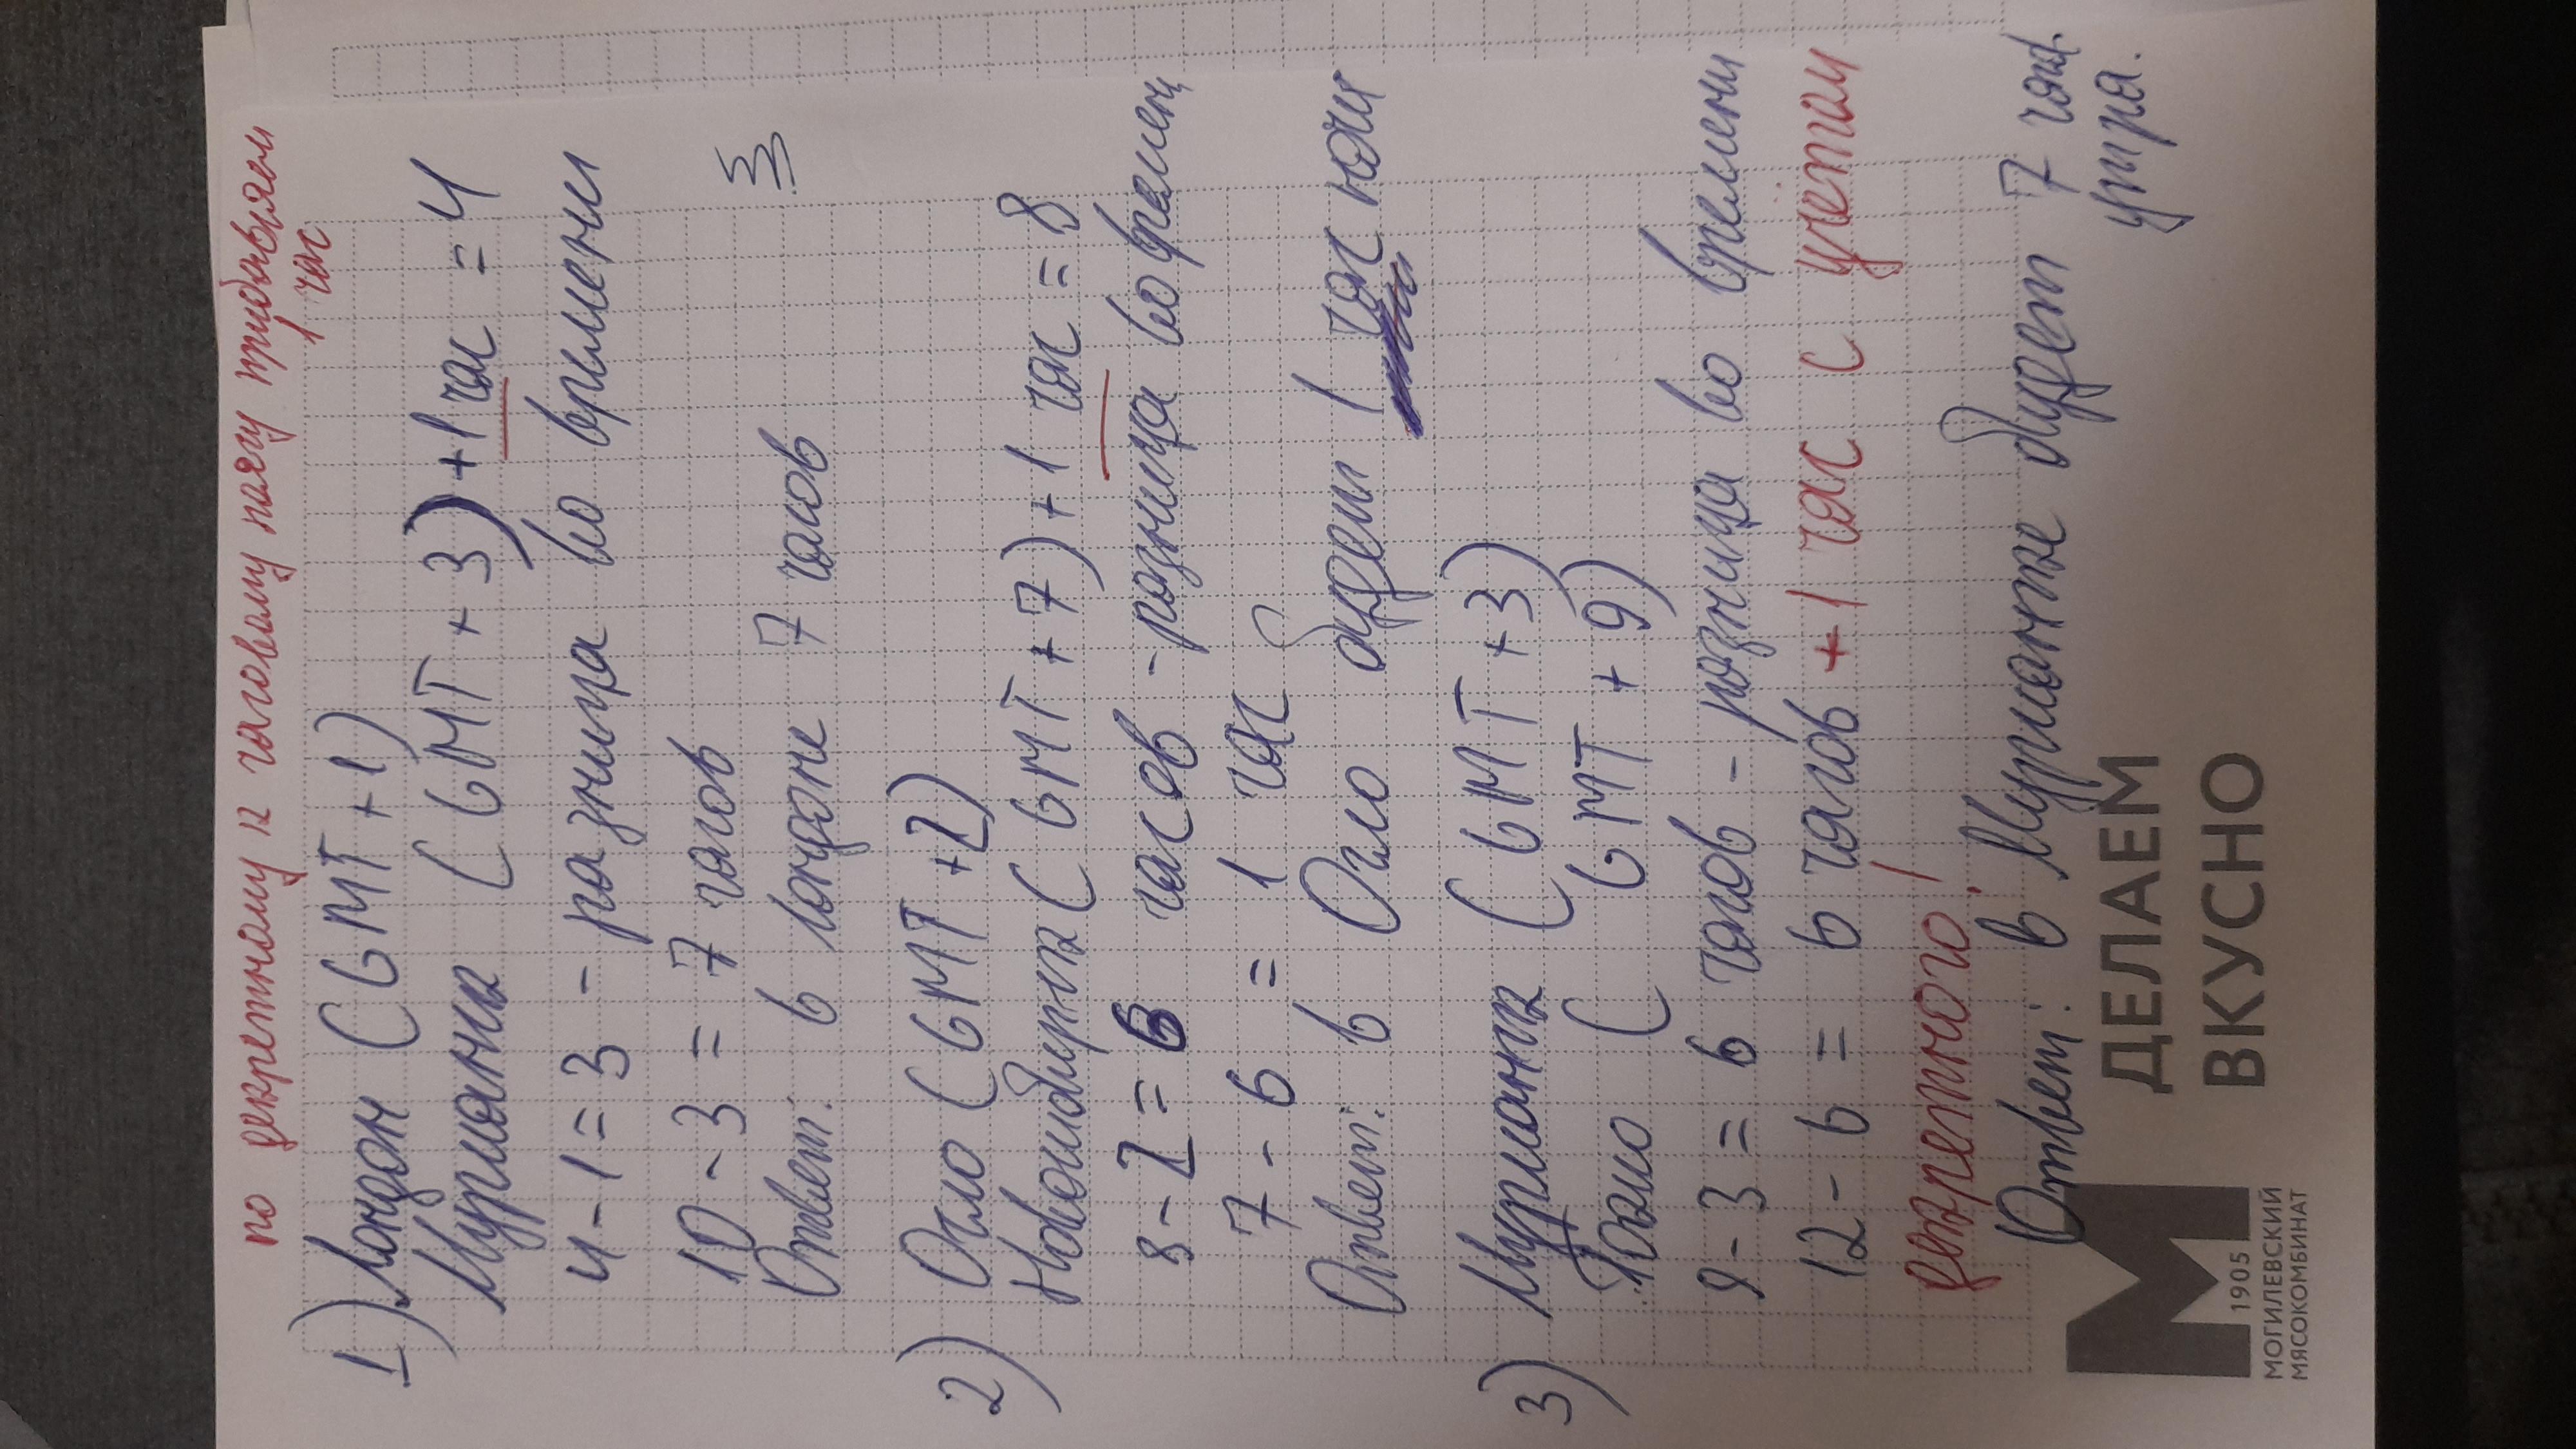 по декретному к часовому поясу прибавляем
1 час
1) Лондон (GMT + 1)
Мурманск (GMT + 3) + 1 час = 4
4 - 1 = 3 - разница во времени
10 - 3 = 7 часов
Ответ: в Лондоне 7 часов
2) Осло (GMT + 2)
Новосибирск (GMT + 7) + 1 час = 8
8 - 2 = 6 часов - разница во времени
7 - 6 = 1 час
Ответ: в Осло будет 1 час ночи
3) Мурманск (GMT + 3)
Токио (GMT + 9)
9 - 3 = 6 часов - разница во времени
12 - 6 = 6 часов + 1 час с учётом
декретного!
Ответ: в Мурманске будет 7 час.
утра.
М
1905
МОГИЛЕВСКИЙ
МЯСОКОМБИНАТ
ДЕЛАЕМ
ВКУСНО